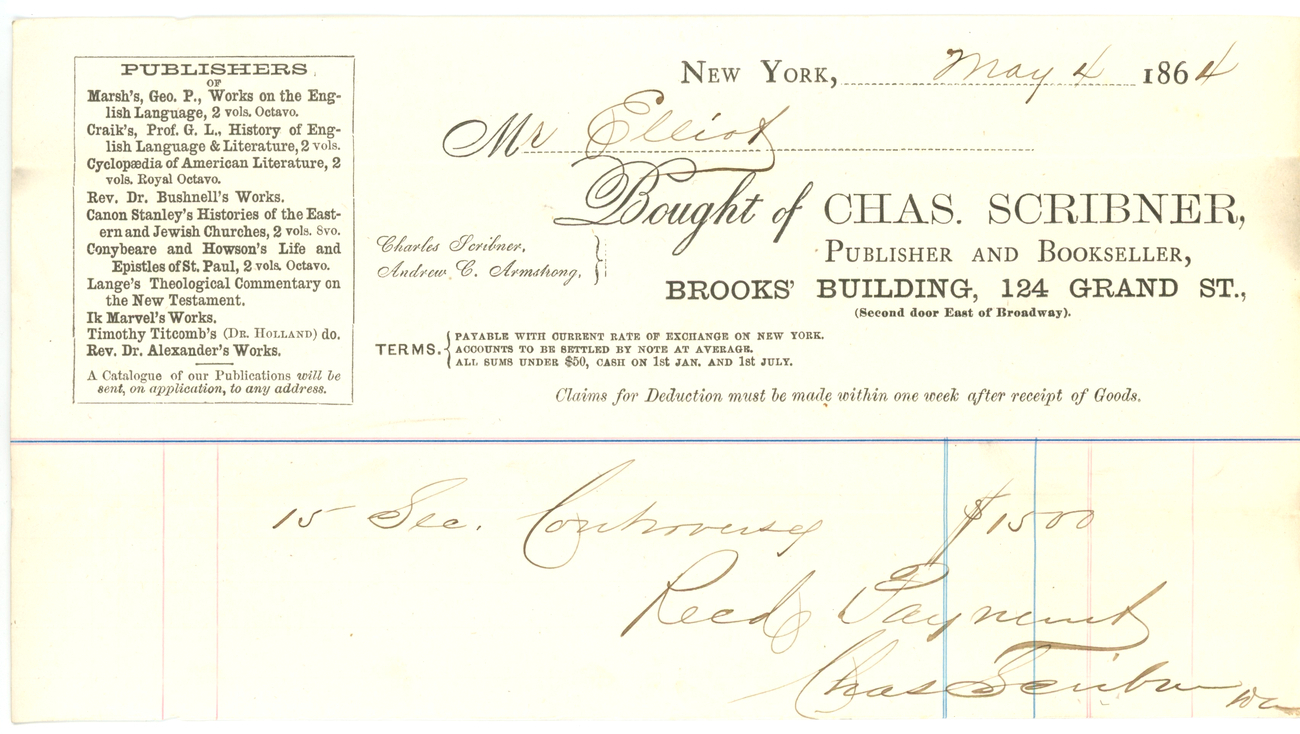 PUBLISHERS
OF
Marsh's, Geo. P., Works on the Eng-
lish Language, 2 vols. Octavo.
Craik's, Prof. G. L., History of Eng-
lish Language & Literature, 2 vols.
Cyclopædia of American Literature, 2
vols. Royal Octavo.
Rev. Dr. Bushnell's Works.
Canon Stanley's Histories of the East-
ern and Jewish Churches, 2 vols. 8vo.
Conybeare and Howson's Life and
Epistles of St. Paul, 2 vols. Octavo.
Lange's Theological Commentary on
the New Testament.
Ik Marvel's Works.
Timothy Titcomb's (DR. HOLLAND) do.
Rev. Dr. Alexander's Works.
A Catalogue of our Publications will be
sent, on application, to any address.
NEW YORK, May 4 1864
Mr Elliot
Bought of CHAS. SCRIBNER,
Charles Scribner,
Andrew C. Armstrong,
PUBLISHER AND BOOKSELLER,
BROOKS' BUILDING, 124 GRAND ST.,
(Second door East of Broadway).
TERMS. PAYABLE WITH CURRENT RATE OF EXCHANGE ON NEW YORK.
ACCOUNTS TO BE SETTLED BY NOTE AT AVERAGE.
ALL SUMS UNDER $50, CASH ON 1st JAN. AND 1st JULY.
Claims for Deduction must be made within one week after receipt of Goods.
15 Sec. Controversy $15 00
Recd Payment
Chas Scribner